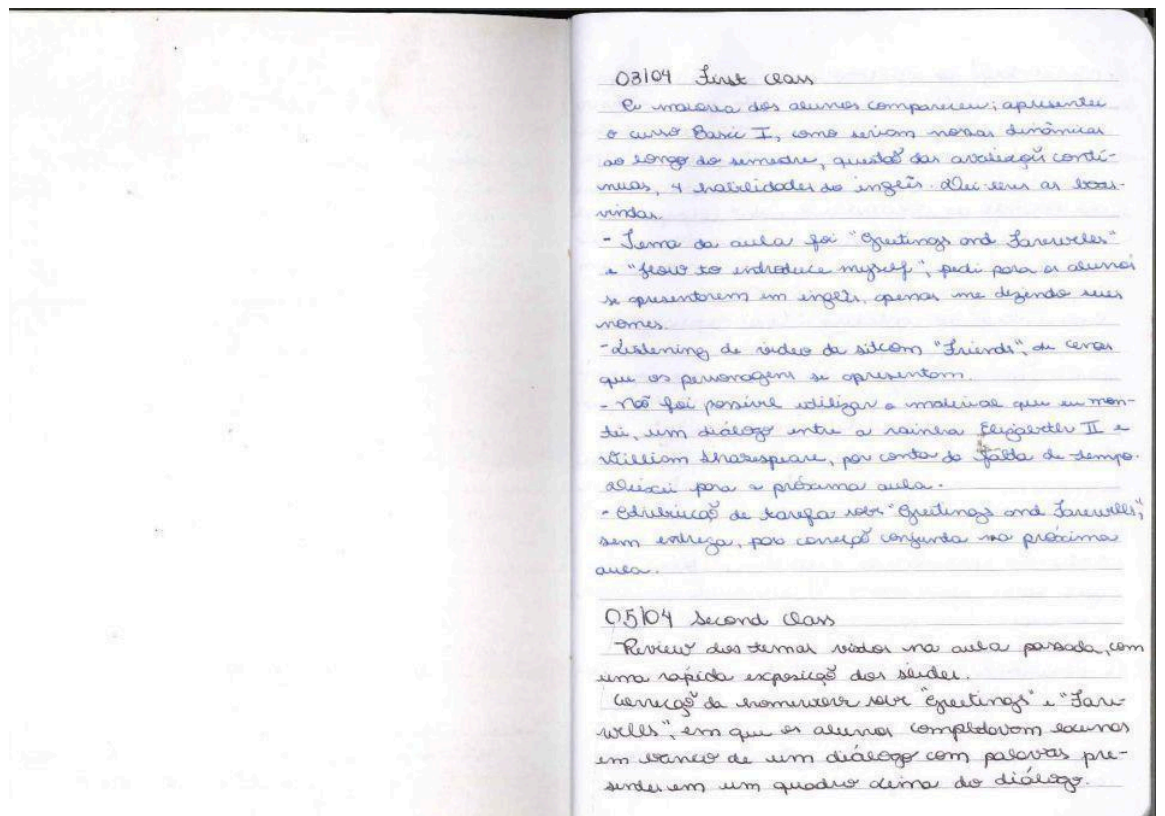 03/04 First class
A maioria dos alunos compareceu; apresentei
o curso Basic I, como seriam nossas dinâmicas
ao longo do semestre, questão das avaliações contí-
nuas, 4 habilidades do inglês. Dei-lhes as boas-
vindas.
- Tema da aula foi "Greetings and Farewells"
e "How to introduce myself", pedi para os alunos
se apresentarem em inglês, apenas me dizendo seus
nomes.
- Listening de vídeo da sitcom "Friends", de cenas
que os personagens se apresentam.
- Não foi possível utilizar o material que eu mon-
tei, um diálogo entre a rainha Elizabeth II e
William Shakespeare, por conta da falta de tempo.
Deixei para a próxima aula.
- Atribuição de tarefa sobre "Greetings and Farewells",
sem entrega, pois correção conjunta na próxima
aula.
05/04 Second class
Review dos temas vistos na aula passada, com
uma rápida exposição dos slides.
Correção da homework sobre "Greetings" e "Fare-
wells", em que os alunos completavam lacunas
em branco de um diálogo com palavras pre-
sentes em um quadro acima do diálogo.